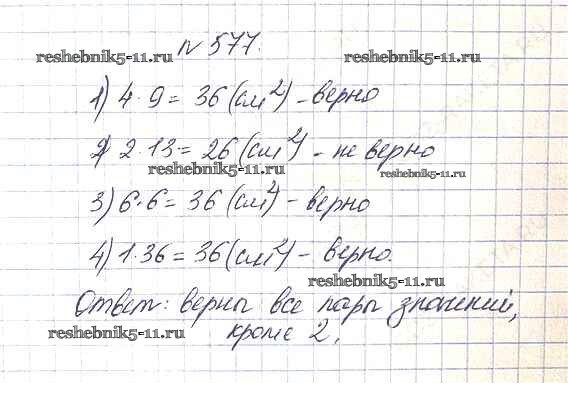 N 577.
reshebnik5-11.ru reshebnik5-11.ru
1) 4·9 = 36 (см²) - верно
2) 2·13 = 26 (см²) - не верно
reshebnik5-11.ru reshebnik5-11.ru
3) 6·6 = 36 (см²) - верно
4) 1·36 = 36 (см²) - верно.
reshebnik5-11.ru
Ответ: верны все пары значений,
reshebnik5-11.ru
кроме 2.